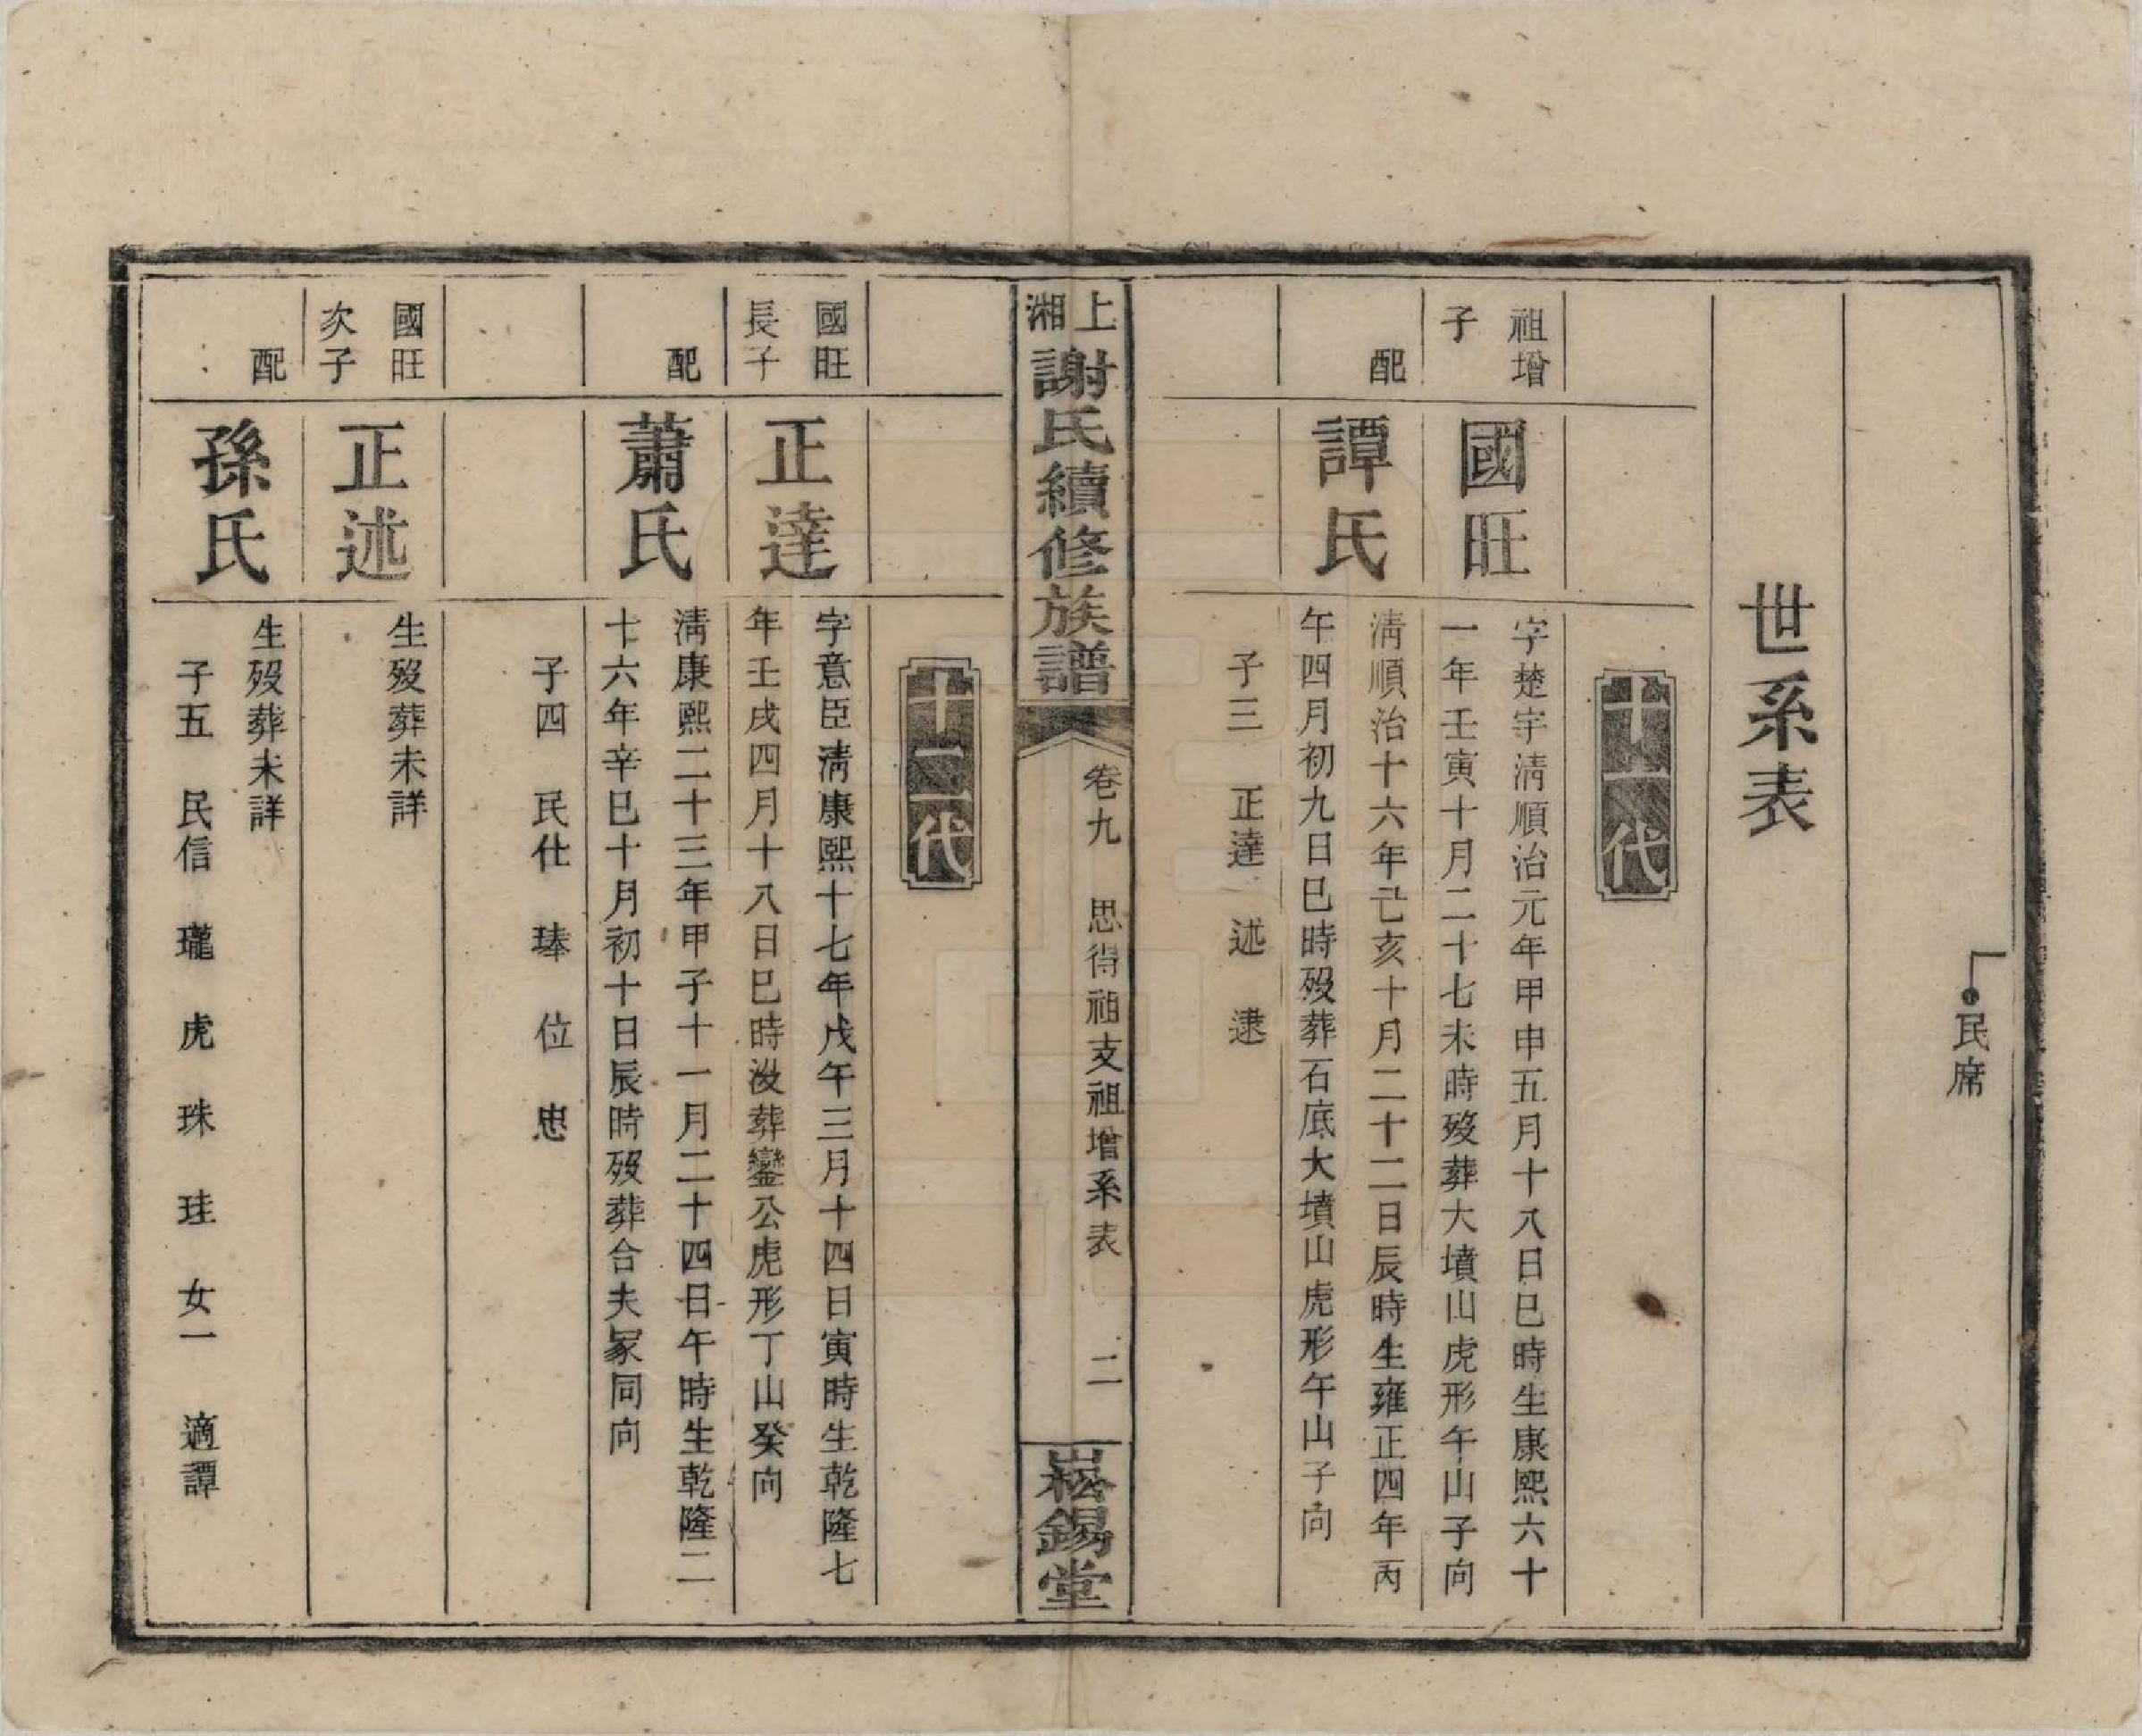 民席
世系表
十一代
祖增
子
國旺
字楚宇清順治元年甲申五月十八日巳時生康熙六十
一年壬寅十月二十七未時歿葬大墳山虎形午山子向
配
譚氏
清順治十六年己亥十月二十二日辰時生雍正四年丙
午四月初九日巳時歿葬石底大墳山虎形午山子向
子三 正達 述 逮
上湘謝氏續修族譜
卷九 思得祖支祖增系表 二
崧錫堂
十二代
國旺
長子
正達
字意臣清康熙十七年戊午三月十四日寅時生乾隆七
年壬戌四月十八日巳時沒葬鑾公虎形丁山癸向
配
蕭氏
清康熙二十三年甲子十一月二十四日午時生乾隆二
十六年辛巳十月初十日辰時歿葬合夫冢同向
子四 民仕 琫 位 忠
國旺
次子
正述
生歿葬未詳
配
孫氏
生歿葬未詳
子五 民信 瓏 虎 珠 珪 女一 適譚